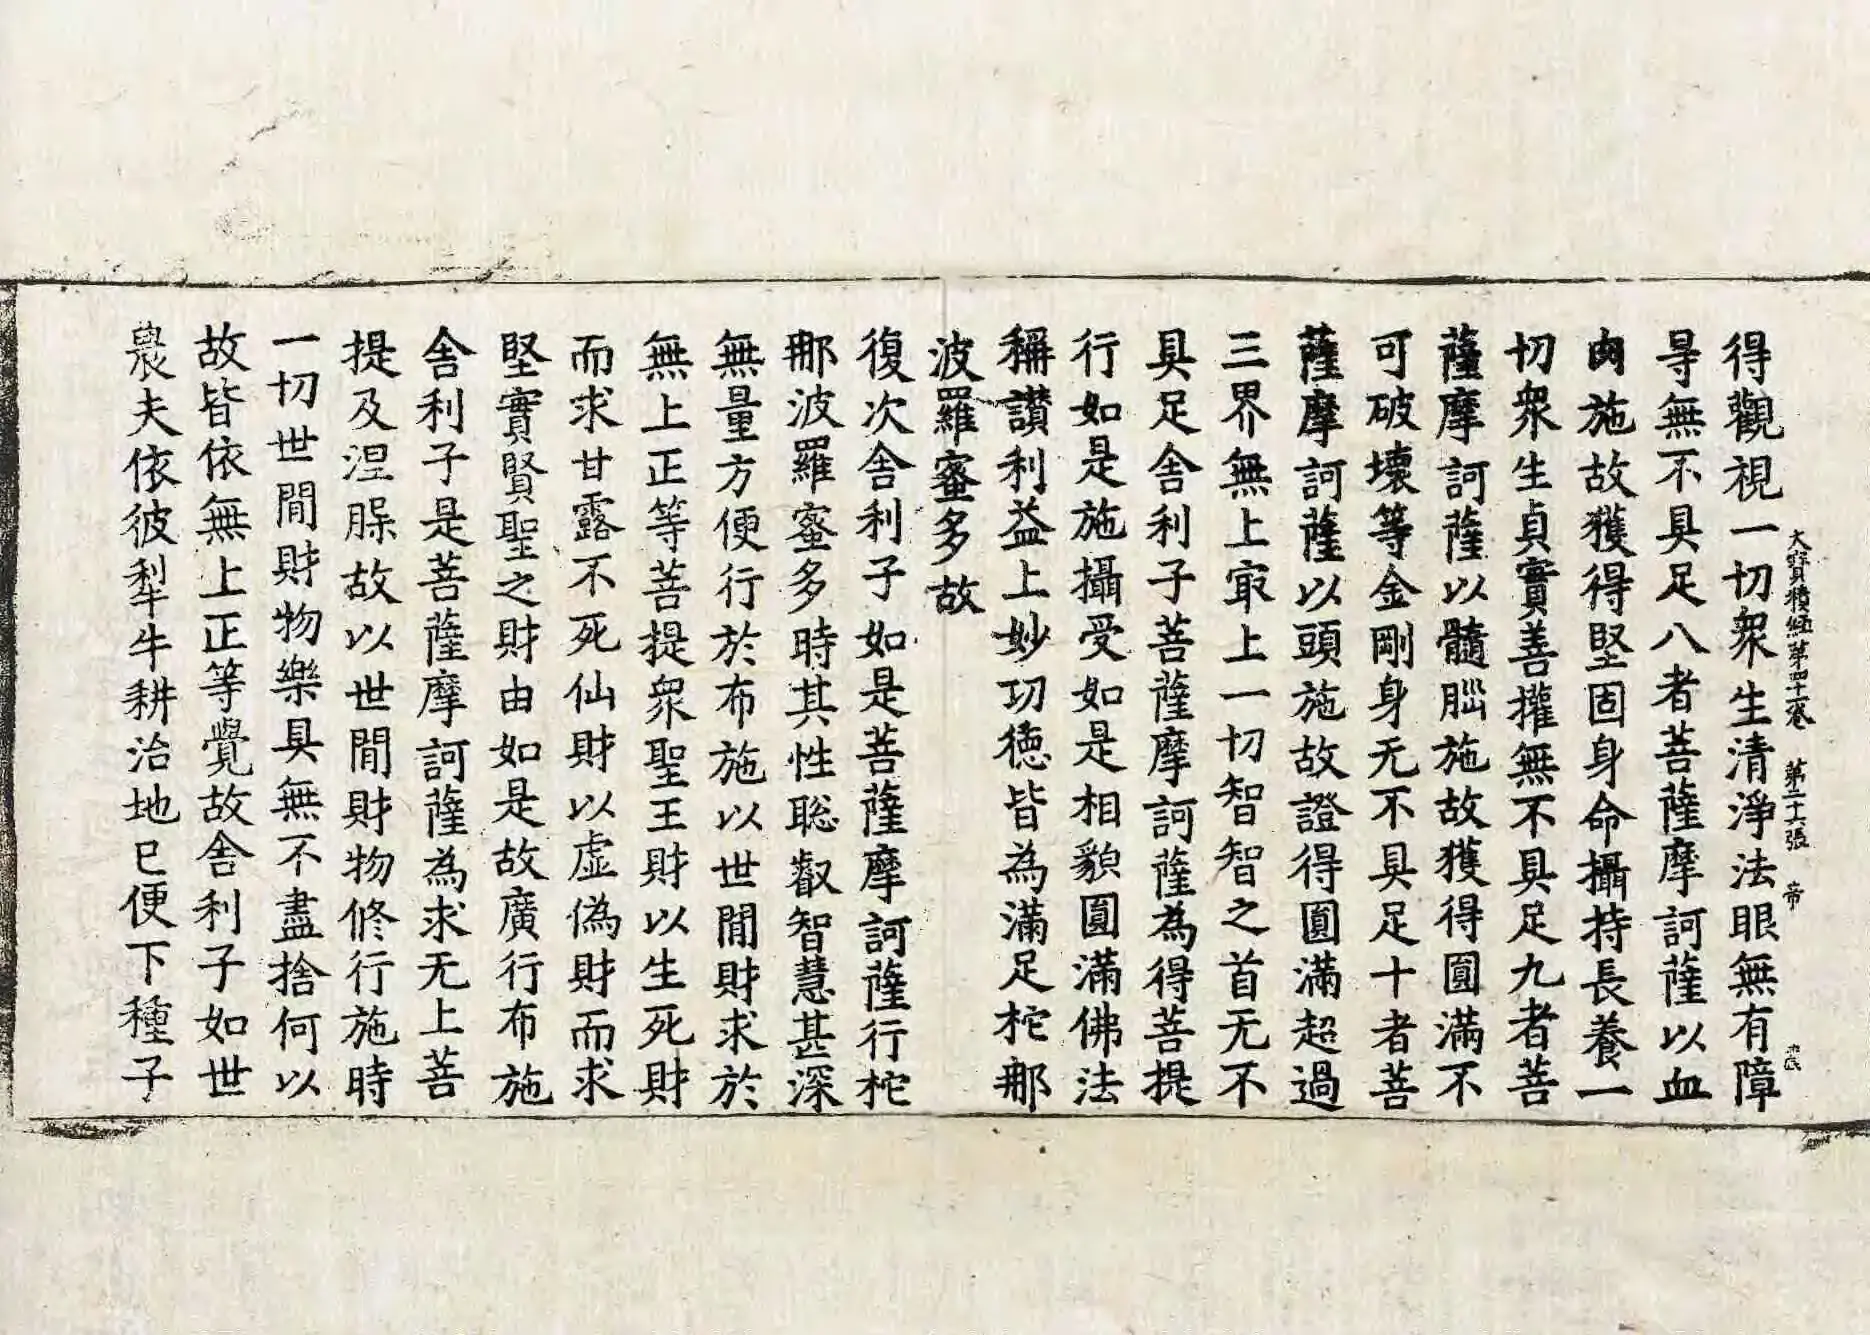 大寶積經第四十一卷 第二十六張 帝
得觀視一切衆生清淨法眼無有障
㝵無不具足八者菩薩摩訶薩以血
肉施故獲得堅固身命攝持長養一
切衆生貞實善權無不具足九者菩
薩摩訶薩以髓腦施故獲得圓滿不
可破壞等金剛身无不具足十者菩
薩摩訶薩以頭施故證得圓滿超過
三界無上㝡上一切智智之首无不
具足舍利子菩薩摩訶薩為得菩提
行如是施攝受如是相貌圓滿佛法
稱讃利益上妙功德皆為滿足柁那
波羅蜜多故
復次舍利子如是菩薩摩訶薩行柁
那波羅蜜多時其性聡叡智慧甚深
無量方便行於布施以世間財求於
無上正等菩提衆聖王財以生死財
而求甘露不死仙財以虛偽財而求
堅實賢聖之財由如是故廣行布施
舍利子是菩薩摩訶薩為求无上菩
提及涅槃故以世間財物修行施時
一切世間財物樂具無不盡捨何以
故皆依無上正等覺故舍利子如世
農夫依彼犁牛耕治地已便下種子